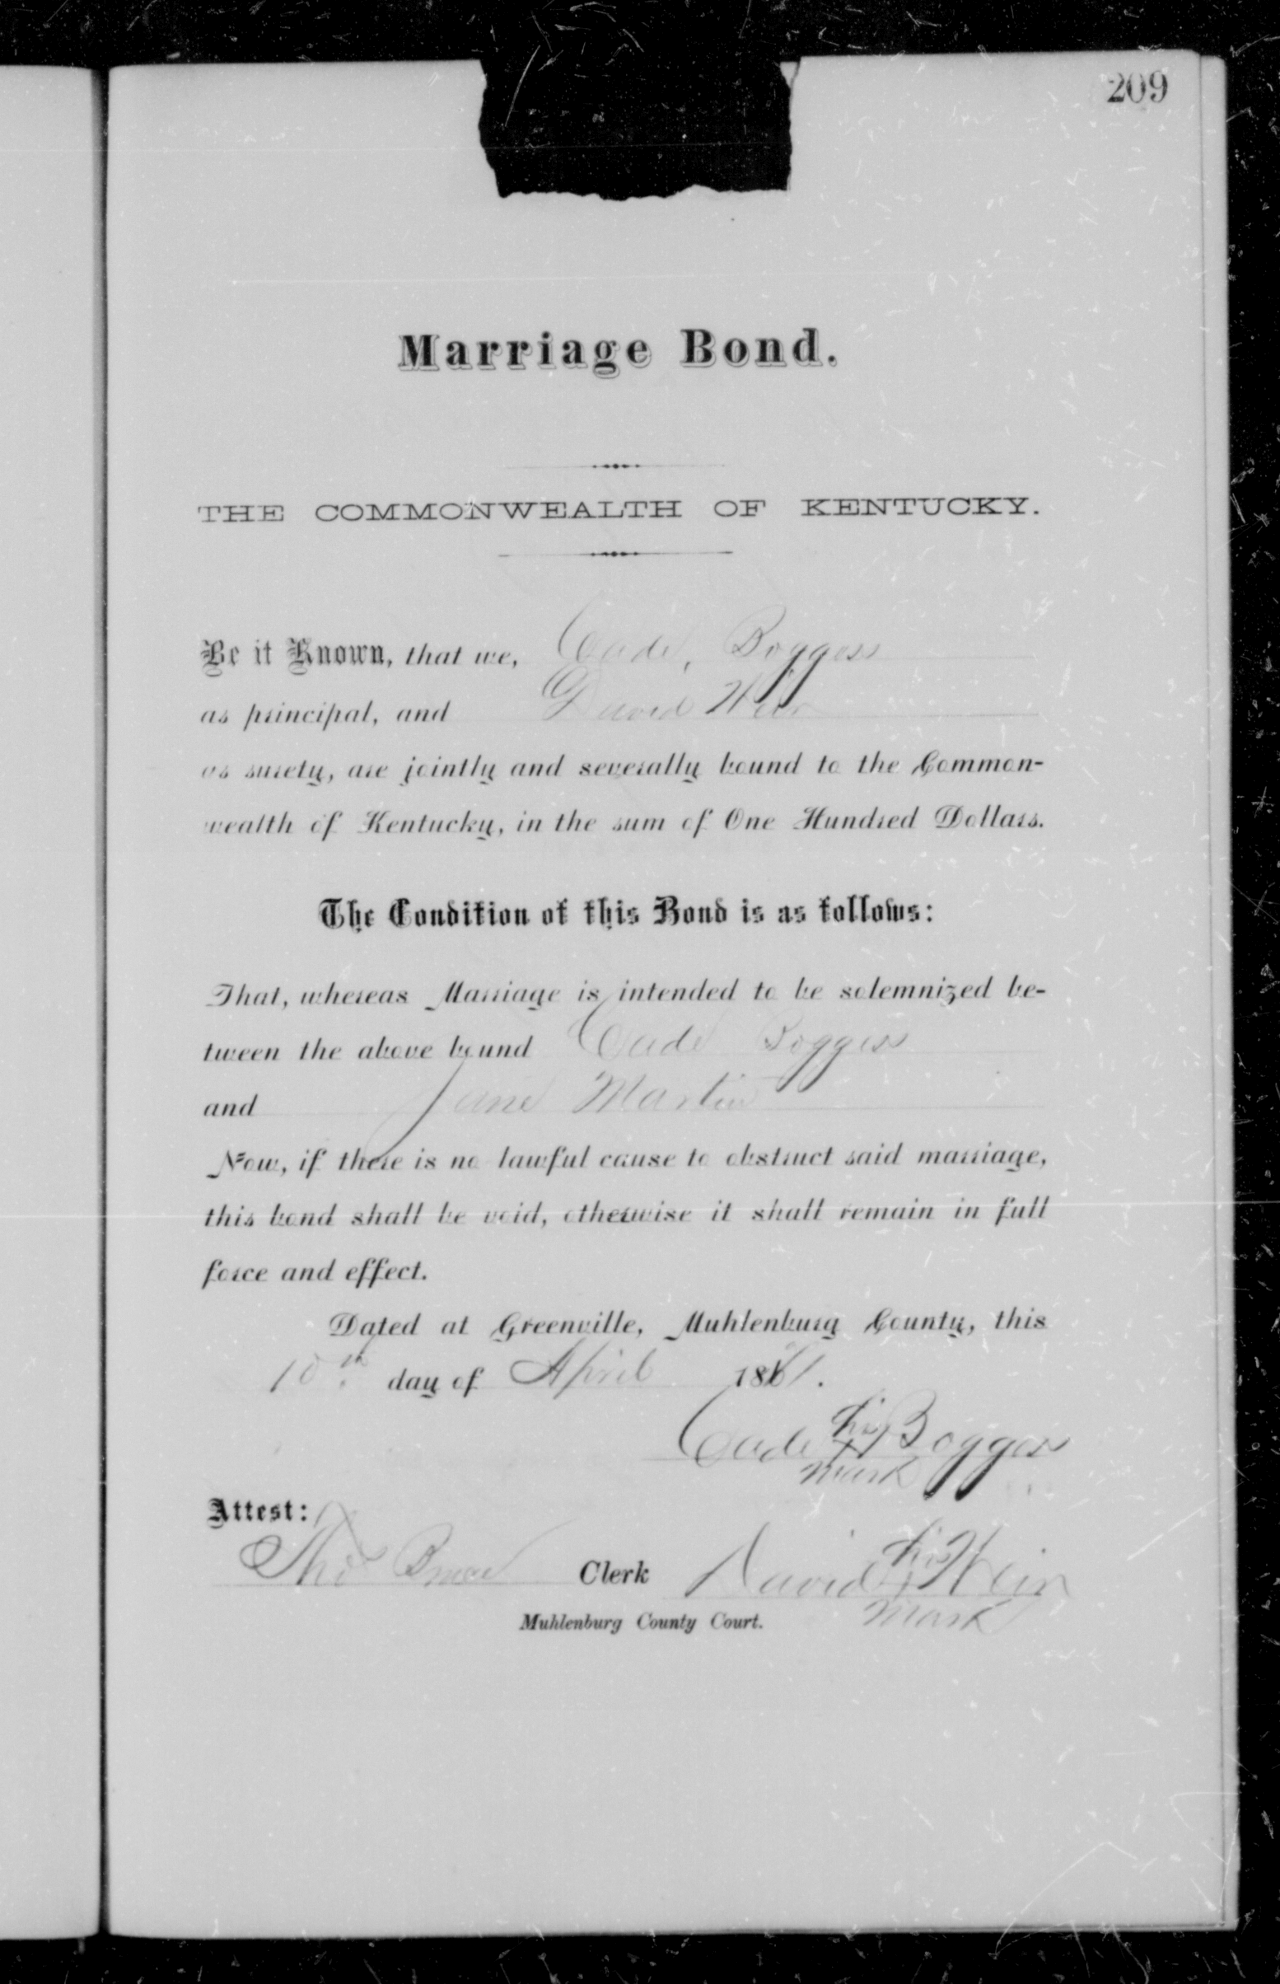 209
Marriage Bond.
THE COMMONWEALTH OF KENTUCKY.
Be it Known, that we, Cade, Boggess
as principal, and David Weir
as surety, are jointly and severally bound to the Common-
wealth of Kentucky, in the sum of One Hundred Dollars.
The Condition of this Bond is as follows:
That, whereas Marriage is intended to be solemnized be-
tween the above bound Cade Boggess
and Jane Martin
Now, if there is no lawful cause to obstruct said marriage,
this bond shall be void, otherwise it shall remain in full
force and effect.
Dated at Greenville, Muhlenburg County, this
10th day of April 1881.
his
Cade X Boggess
mark
Attest:
Tho Bruce Clerk
his
David X Weir
mark
Muhlenburg County Court.